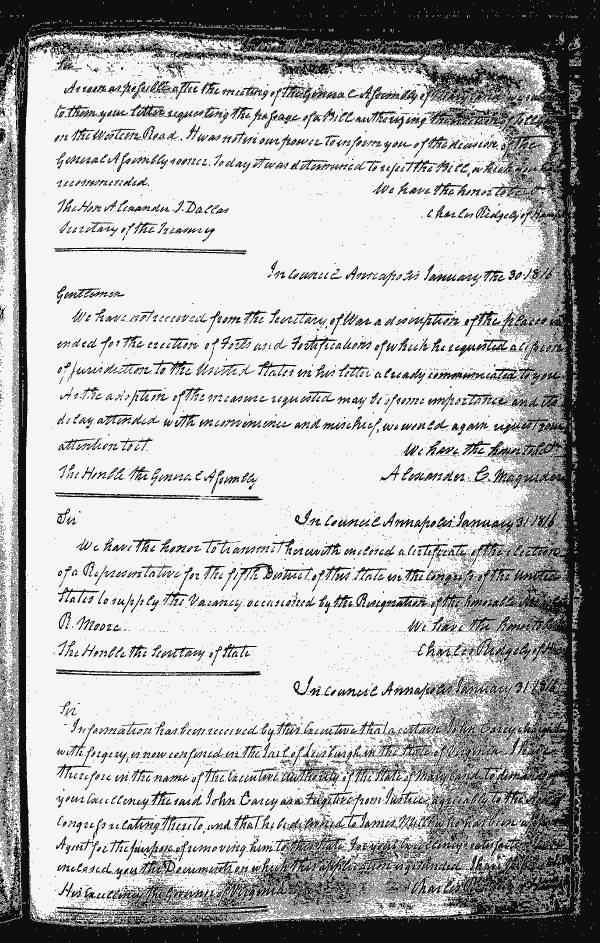 Sir
As soon as possible after the meeting of the General Assembly of
to them your letter requesting the passage of a Bill authorizing the
on the Western Road. It was not in our power to inform you of the decision of the
General Assembly sooner. Today it was determined to reject the Bill, which you had
recommended. We have the honor to be &c
The Hon. Alexander J. Dallas Charles Ridgely of Hamp
Secretary of the Treasury
In Council Annapolis January the 30. 1816
Gentlemen
We have not received from the Secretary of War a description of the places in
ended for the erection of Forts and Fortifications of which he requested a cession
of jurisdiction to the United States in his letter already communicated to you
As the adoption of the measure requested may be of some importance and its
delay attended with inconvenience and mischief, we would again request your
attention to it. We have the honor to be &c
The Honble the General Assembly Alexander C. Magruder
Sir In Council Annapolis January 31 1816
We have the honor to transmit herewith enclosed a certificate of the election
of a Representative for the fifth District of this State in the Congress of the United
States to supply the Vacancy occasioned by the Resignation of the honorable
R. Moore. We have the honor to be
The Honble the Secretary of State Charles Ridgely of
In Council Annapolis January 31 1816
Sir
Information has been received by this Executive that a certain John Carey charged
with forgery, is now confined in the Jail of Leesburgh in the State of Virginia. I have
therefore in the name of the Executive authority of the State of Maryland to demand of
your excellency the said John Carey as a Fugitive from Justice, agreeably to the
Congress relating thereto, and that he be delivered to James who has been
Agent for the purpose of removing him to this State. For your Excellency's satisfaction
enclosed you the Documents on which this application is grounded. I have
His Excellency the Governor of Virginia Charles